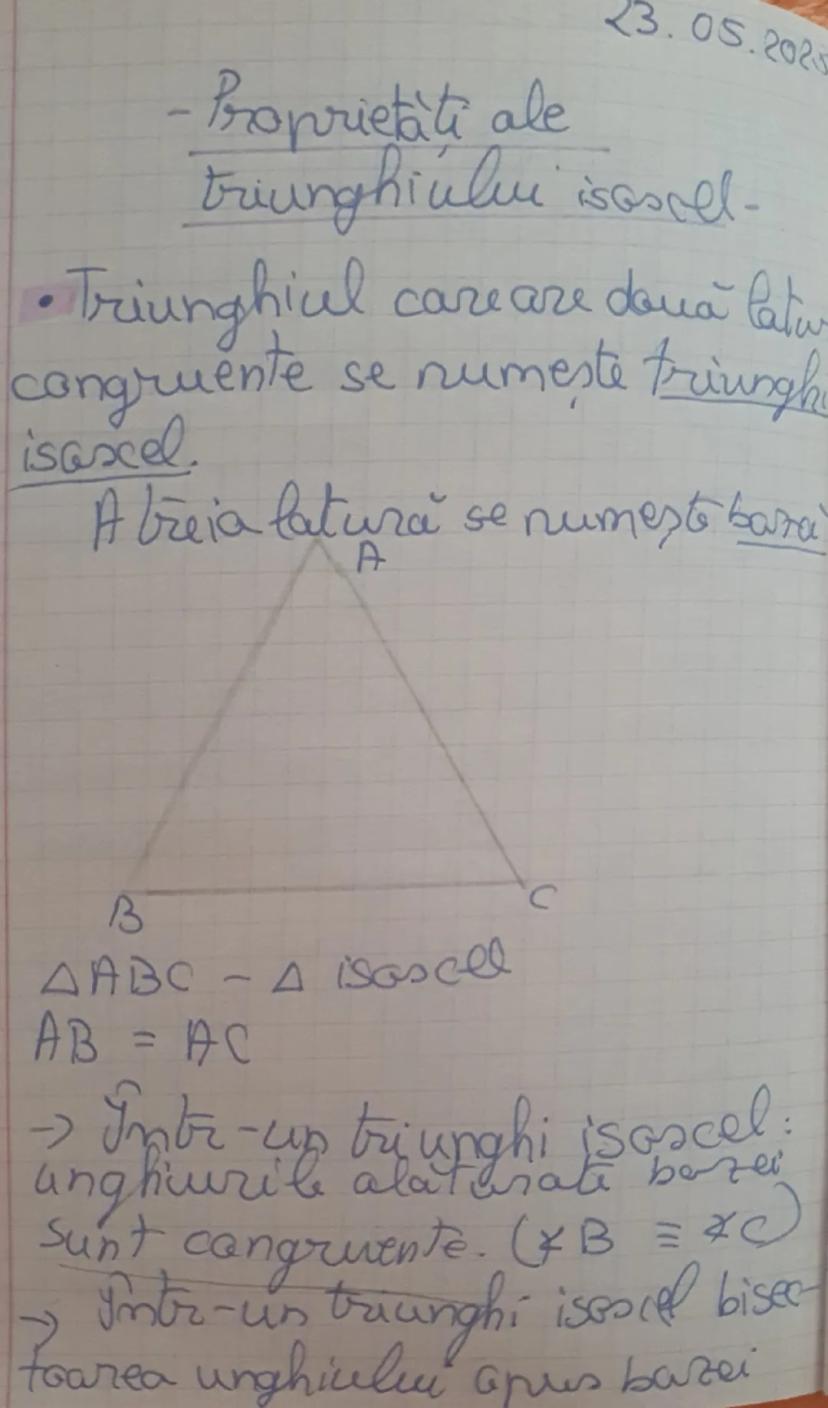 23.05.2025
- Proprietăți ale
triunghiului isoscel -
• Triunghiul care are două latu
congruente se numește triunghi
isoscel.
A treia latură se numește baza
A
B
C
△ABC - △ isoscel
AB = AC
→ Într-un triunghi isoscel:
unghiurile alăturate bazei
sunt congruente. (∢B ≡ ∢C)
→ Într-un triunghi isoscel bisec-
toarea unghiului opus bazei